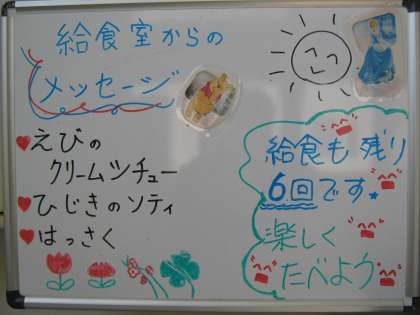 給食室からの
メッセージ
えびの
クリームシチュー
ひじきのソティ
はっさく
給食も残り
6回です。
楽しく
たべよう